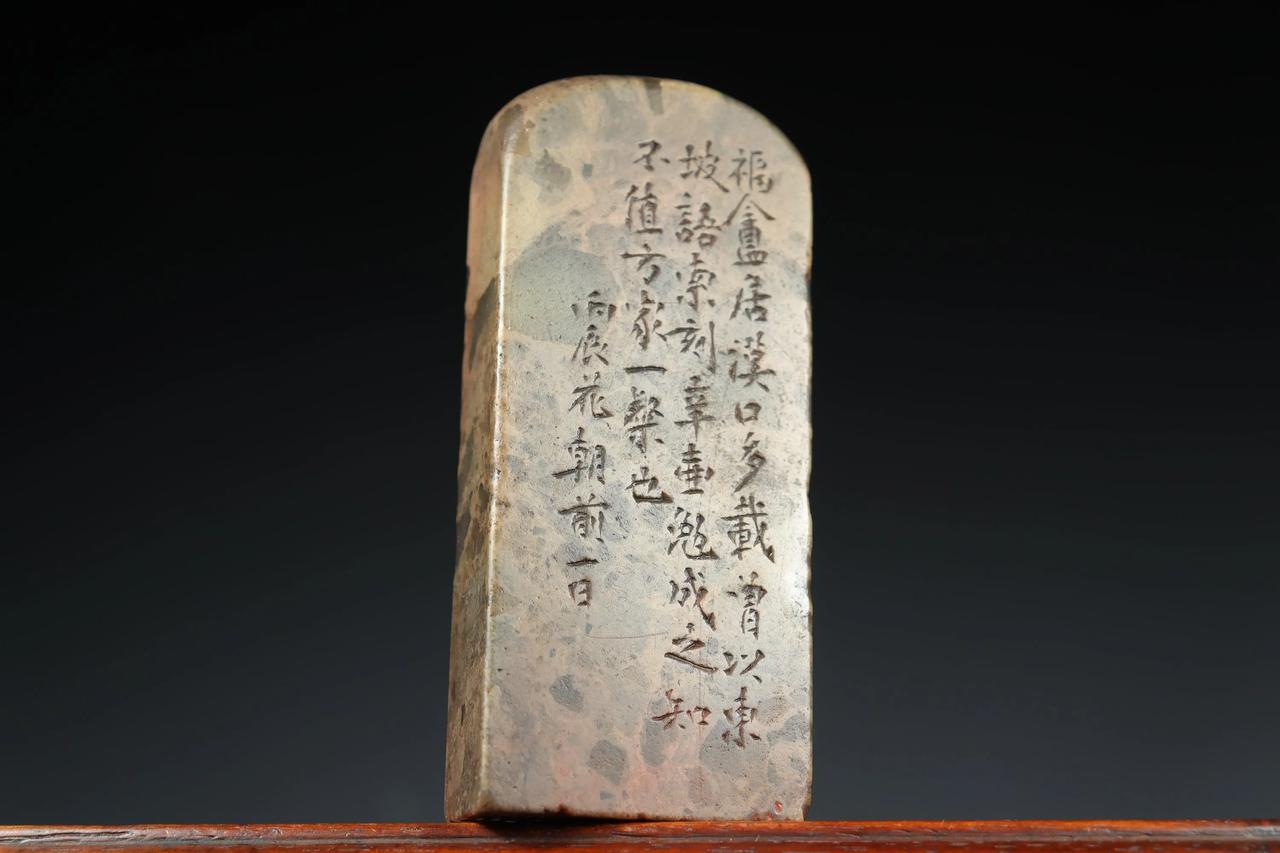 福盦居漢口多載曾以東
坡語索刻章壷勉成之知
不值方家一粲也
丙辰花朝前一日